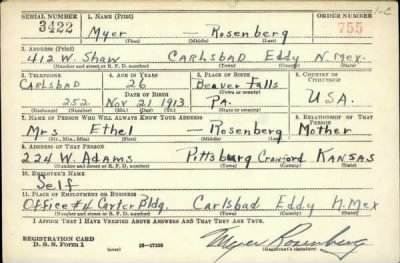 1-C
SERIAL NUMBER 1. NAME (Print) ORDER NUMBER
3422 Myer — Rosenberg 755
(First) (Middle) (Last)
2. ADDRESS (Print)
412 W. Shaw Carlsbad Eddy N. Mex.
(Number and street or R. F. D. number) (Town) (County) (State)
3. TELEPHONE 4. AGE IN YEARS 5. PLACE OF BIRTH 6. COUNTRY OF CITIZENSHIP
Carlsbad 26 Beaver Falls
(Town or county)
DATE OF BIRTH
252 Nov 21 1913 Pa. USA.
(Exchange) (Number) (Mo.) (Day) (Yr.) (State or country)
7. NAME OF PERSON WHO WILL ALWAYS KNOW YOUR ADDRESS 8. RELATIONSHIP OF THAT PERSON
Mrs Ethel — Rosenberg Mother
(Mr., Mrs., Miss) (First) (Middle) (Last)
9. ADDRESS OF THAT PERSON
224 W. Adams Pittsburg Crawford Kansas
(Number and street or R. F. D. number) (Town) (County) (State)
10. EMPLOYER'S NAME
Self
11. PLACE OF EMPLOYMENT OR BUSINESS
Office #4 Carter Bldg. Carlsbad Eddy N. Mex
(Number and street or R. F. D. number) (Town) (County) (State)
I AFFIRM THAT I HAVE VERIFIED ABOVE ANSWERS AND THAT THEY ARE TRUE.
REGISTRATION CARD
D. S. S. Form 1 16—17105 Myer Rosenberg
(over) (Registrant's signature)